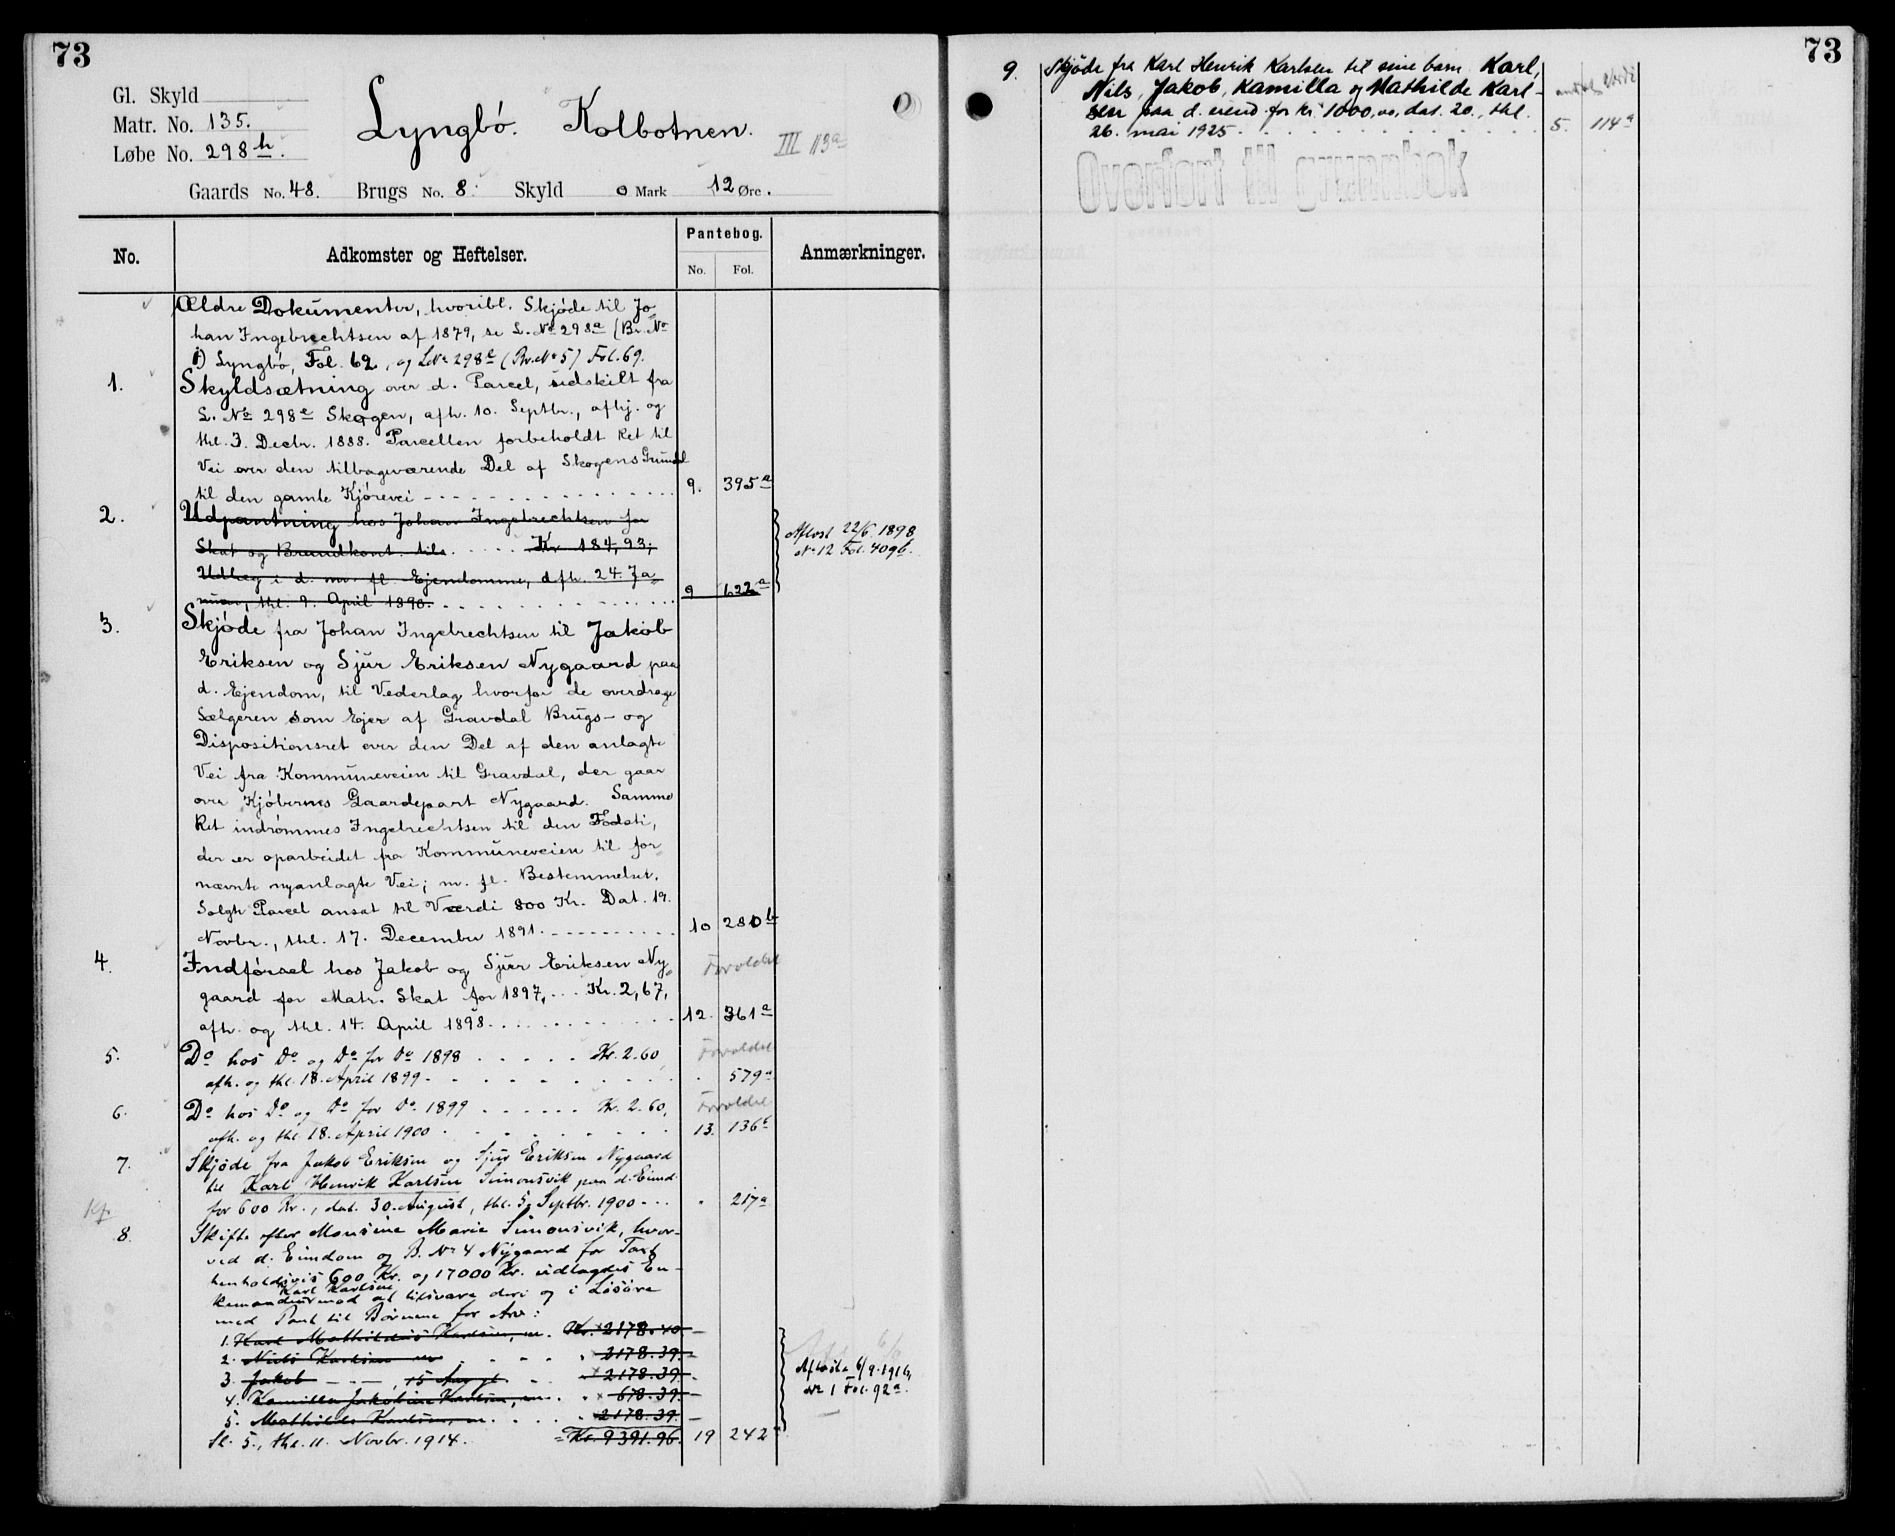 73
Gl. Skyld
Matr. No. 135.
Løbe No. 298 h.
Lyngbö. Kolbotnen.
III 113a
Gaards No. 48. Brugs No. 8. Skyld 0 Mark 12 Øre.
No. Adkomster og Heftelser. Pantebog. No. Fol. Anmærkninger.
Ældre Dokumenter, hvoribl. Skjøde til Jo-
han Ingebrechtsen af 1879, se L. No 298a (Br. No
1) Lyngbö, Fol. 62, og LNo 298e (Br. No 5) Fol. 69.
1. Skyldsætning over d. Parcel, udskilt fra
L. No 298e Skogen, afh. 10. Septbr., afhj. og
thl. 3. Decbr. 1888. Parcellen forbeholdt Ret til
Vei over den tilbageværende Del af Skogens Grund
til den gamle Kjørevei 9. 395a
2. Udpantning hos Johan Ingebrechtsen for
Skat og Brandkont. tils. Kr. 184,93;
Udlæg i d. m. fl. Ejendomme, afh. 24. Ja-
nuar, thl. 9. April 1890. 9 622a
Aflæst 22/6 1898
No 12 Fol. 409b.
3. Skjøde fra Johan Ingebrechtsen til Jakob
Eriksen og Sjur Eriksen Nygaard paa
d. Ejendom, til Vederlag hvorfor de overdrage
Sælgeren som Ejer af Gravdal Brugs- og
Dispositionsret over den Del af den anlagte
Vei fra Kommuneveien til Gravdal, der gaar
over Kjøbernes Gaardepart Nygaard. Samme
Ret indrømmes Ingebrechtsen til den Fodsti,
der er oparbeidet fra Kommuneveien til for-
nævnte nyanlagte Vei; m. fl. Bestemmelser.
Solgte Parcel ansat til Værdi 800 Kr. Dat. 19.
Novbr., thl. 17. December 1891. 10 280b
4. Indførsel hos Jakob og Sjur Eriksen Ny- Forældet
gaard for Matr. Skat for 1897, Kr. 2,67,
afh. og thl. 14. April 1898. 12. 361a
5. Do hos Do og Do for Do 1898 Kr. 2.60, Forældet
afh. og thl. 18. April 1899. 579a
6. Do hos Do og Do for Do 1899 Kr. 2.60, Forældet
afh. og thl 18. April 1900 13. 136b
7. Skjøde fra Jakob Eriksen og Sjur Eriksen Nygaard
til Karl Henrik Karlsen Simonsvik paa d. Eiend.
for 600 Kr., dat. 30. August, thl. 5 Septbr. 1900 217a
8. Skifte efter Monsine Marie Simonsvik, hvor-
ved d. Eiendom og B. No 4 Nygaard for Taxt
henholdsvis 600 Kr. og 17000 Kr. udlagdes En-
Karl Karlsen
kemanden mod at tilsvare deri og i Løsøre
med Pant til Børnene for Arv:
1. Karl Mathildus Karlsen, m. Kr. 2178.40.
2. Nils Karlsen m 2178.39.
3. Jakob 15 Aar gl. 2178.39.
4. Kamilla Jakobine Karlsen, m. 678.39.
5. Mathilde Karlsen, m. 2178.39.
Sl. 5., thl. 11. Novbr. 1914. = Kr. 9391.96. 19 242
Aflæst 6/9.1916,
No 1 Fol. 92a.
73
9. Skjøde fra Karl Henrik Karlsen til sine barn Karl,
Nils, Jakob, Kamilla og Mathilde Karl-
sen paa d. eiend. for kr. 1000,00, dat. 20., thl.
26. mai 1925. 5. 114a
Overført til grunnbok